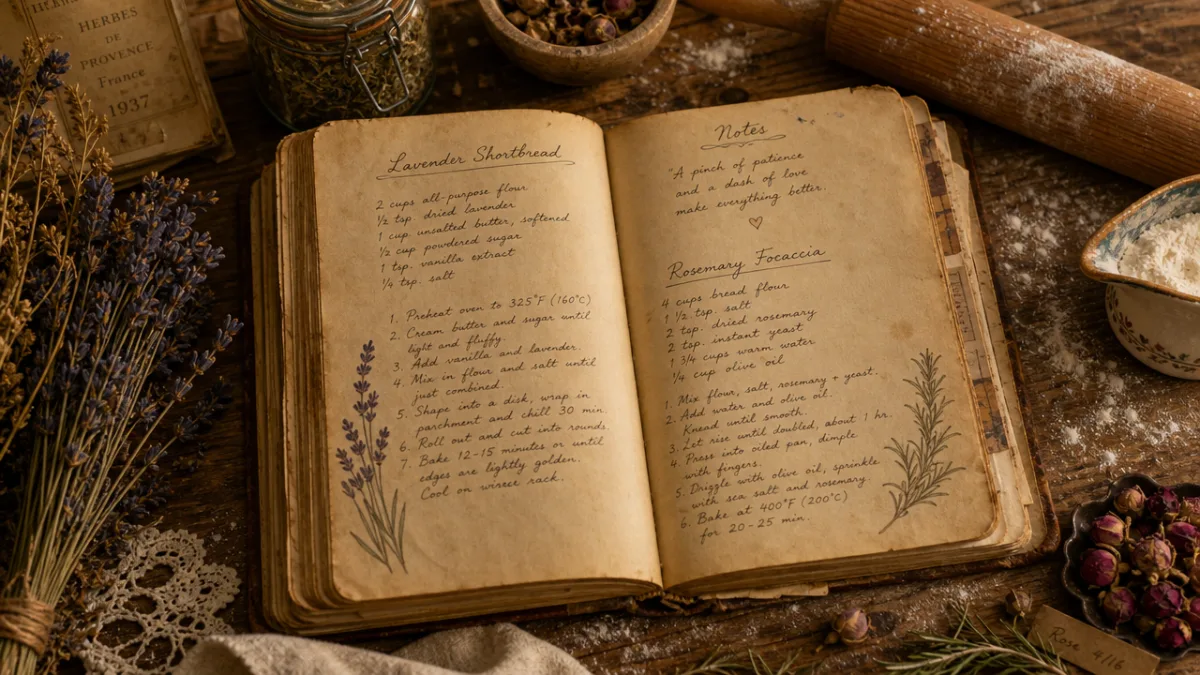 HERBES
DE
PROVENCE
France
1937
Lavender Shortbread
2 cups all-purpose flour
½ tsp. dried lavender
1 cup unsalted butter, softened
½ cup powdered sugar
1 tsp. vanilla extract
¼ tsp. salt
1. Preheat oven to 325°F (160°C)
2. Cream butter and sugar until
light and fluffy.
3. Add vanilla and lavender.
4. Mix in flour and salt until
just combined.
5. Shape into a disk, wrap in
parchment and chill 30 min.
6. Roll out and cut into rounds.
7. Bake 12-15 minutes or until
edges are lightly golden.
Cool on wirece rack.
Notes
"A pinch of patience
and a dash of love
make everything better.
Rosemary Focaccia
4 cups bread flour
1 1/2 tsp. salt
2 tsp. dried rosemary
2 tsp. instant yeast
1 3/4 cups warm water
¼ cup olive oil
1. Mix flour, salt, rosemary + yeast.
2. Add water and olive oil.
Knead until smooth.
3. Let rise until doubled, about 1 hr.
4. Press into oiled pan, dimple
with fingers.
5. Drizzle with olive oil, sprinkle
with sea salt and rosemary.
6. Bake at 400°F (200°C)
for 20-25 min.
Rose 4/16